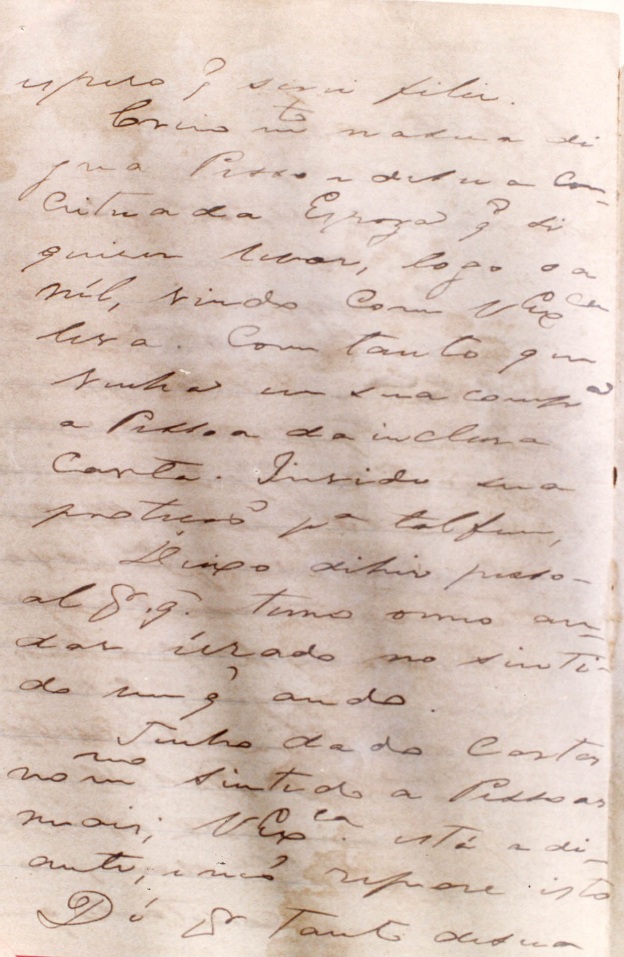 espero q̃ serei feliz.
Creio m.to na sua di
gna Pessoa e de sua con-
ceituada Espoza q̃ si
quizer levar, logo o a
nil, vindo com V Ex.cia
leva. Com tanto que
venha em sua comp.a
a Pessoa da incluza
Carta. Invide sua
proteção p.a tal fim,
Deixo de hir pesso-
al q̃. temo como an-
dar errado no sinti-
do em q̃ ando.
Tenho dado Cartas
no m sintido a Pessoas
mais; V Ex.ca está a di-
ante, e não repare isto
Dê tanto de sua